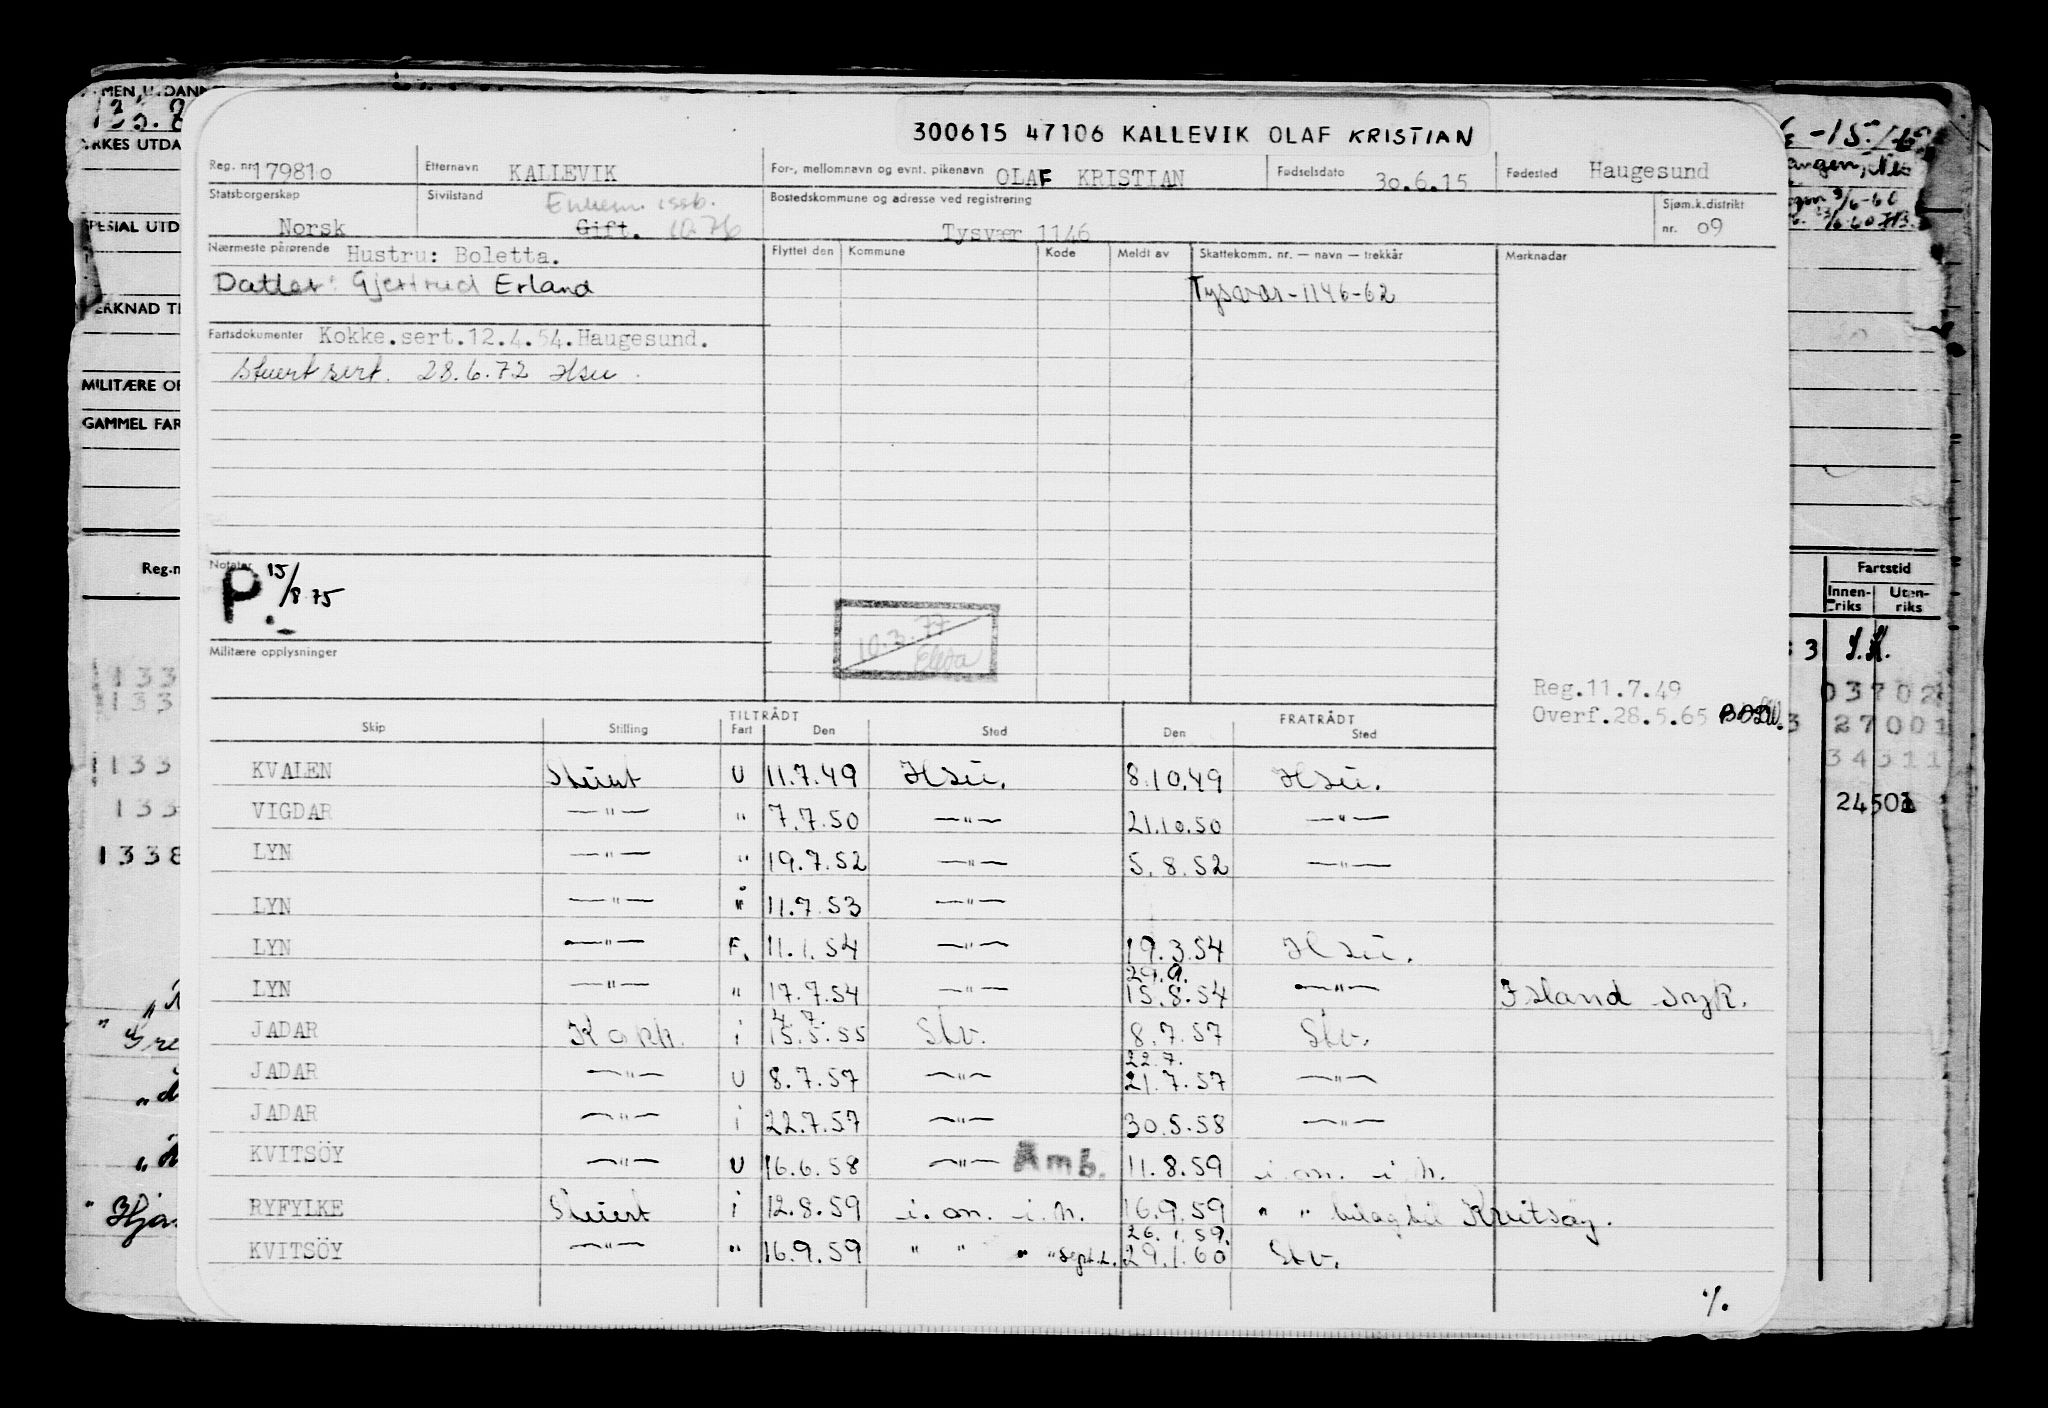 300615 47106 KALLEVIK OLAF KRISTIAN
Reg. nr. 179810 Etternavn KALLEVIK For-, mellomnavn og evnt. pikenavn OLAF KRISTIAN Fødselsdato 30.6.15 Fødested Haugesund
Statsborgerskap Norsk Sivilstand Gift. Enkem. 10.76 Bostedskommune og adresse ved registrering Tysvær 1146 Sjøm.k.distrikt nr. 09
Nærmeste pårørende Hustru: Boletta. Flyttet den Kommune Kode Meldt av Skattekomm. nr. — navn — trekkår Merknadar
Datter: Gjertrud Erland Tysvær-1146-62
Fartsdokumenter Kokke.sert.12.4.54.Haugesund.
Stuert sert. 28.6.72 Hsu.
Notater P. 15/8 75
10.3.77
Militære opplysninger
Reg.11.7.49
Overf.28.5.65
TILTRÅDT FRATRÅDT
Skip Stilling Fart Den Sted Den Sted
KVALEN Stuert U 11.7.49 Hsu. 8.10.49 Hsu.
VIGDAR —"— " 7.7.50 —"— 21.10.50 —"—
LYN —"— " 19.7.52 —"— 5.8.52 —"—
LYN —"— " 11.7.53 —"—
LYN —"— F. 11.1.54 —"— 19.3.54 Hsu.
29.9.
LYN —"— " 17.7.54 —"— 15.8.54 —"— Island syk.
4.7.
JADAR Kokk. i 15.5.55 Stv. 8.7.57 Stv.
22.7.
JADAR —"— U 8.7.57 —"— 21.7.57 —"—
JADAR —"— i 22.7.57 —"— 30.5.58 —"—
KVITSÖY —"— U 16.6.58 —"— Amb. 11.8.59 i. on. i. h.
RYFYLKE Stuert i 12.8.59 i. on. i. h. 16.9.59 " " bilag til Kvitsøy.
26.1.59.
KVITSÖY —"— " 16.9.59 " " " " 29.1.60 Stv.
%
MEN, UTDANN
RKES UTDA
PESIAL UTD
ERKNAD TI
MILITÆRE OP
GAMMEL FAR
Reg.n
133
133
133
133
1338
Fartstid
Innen-riks Uten-riks
3
03702
27001
34311
24501